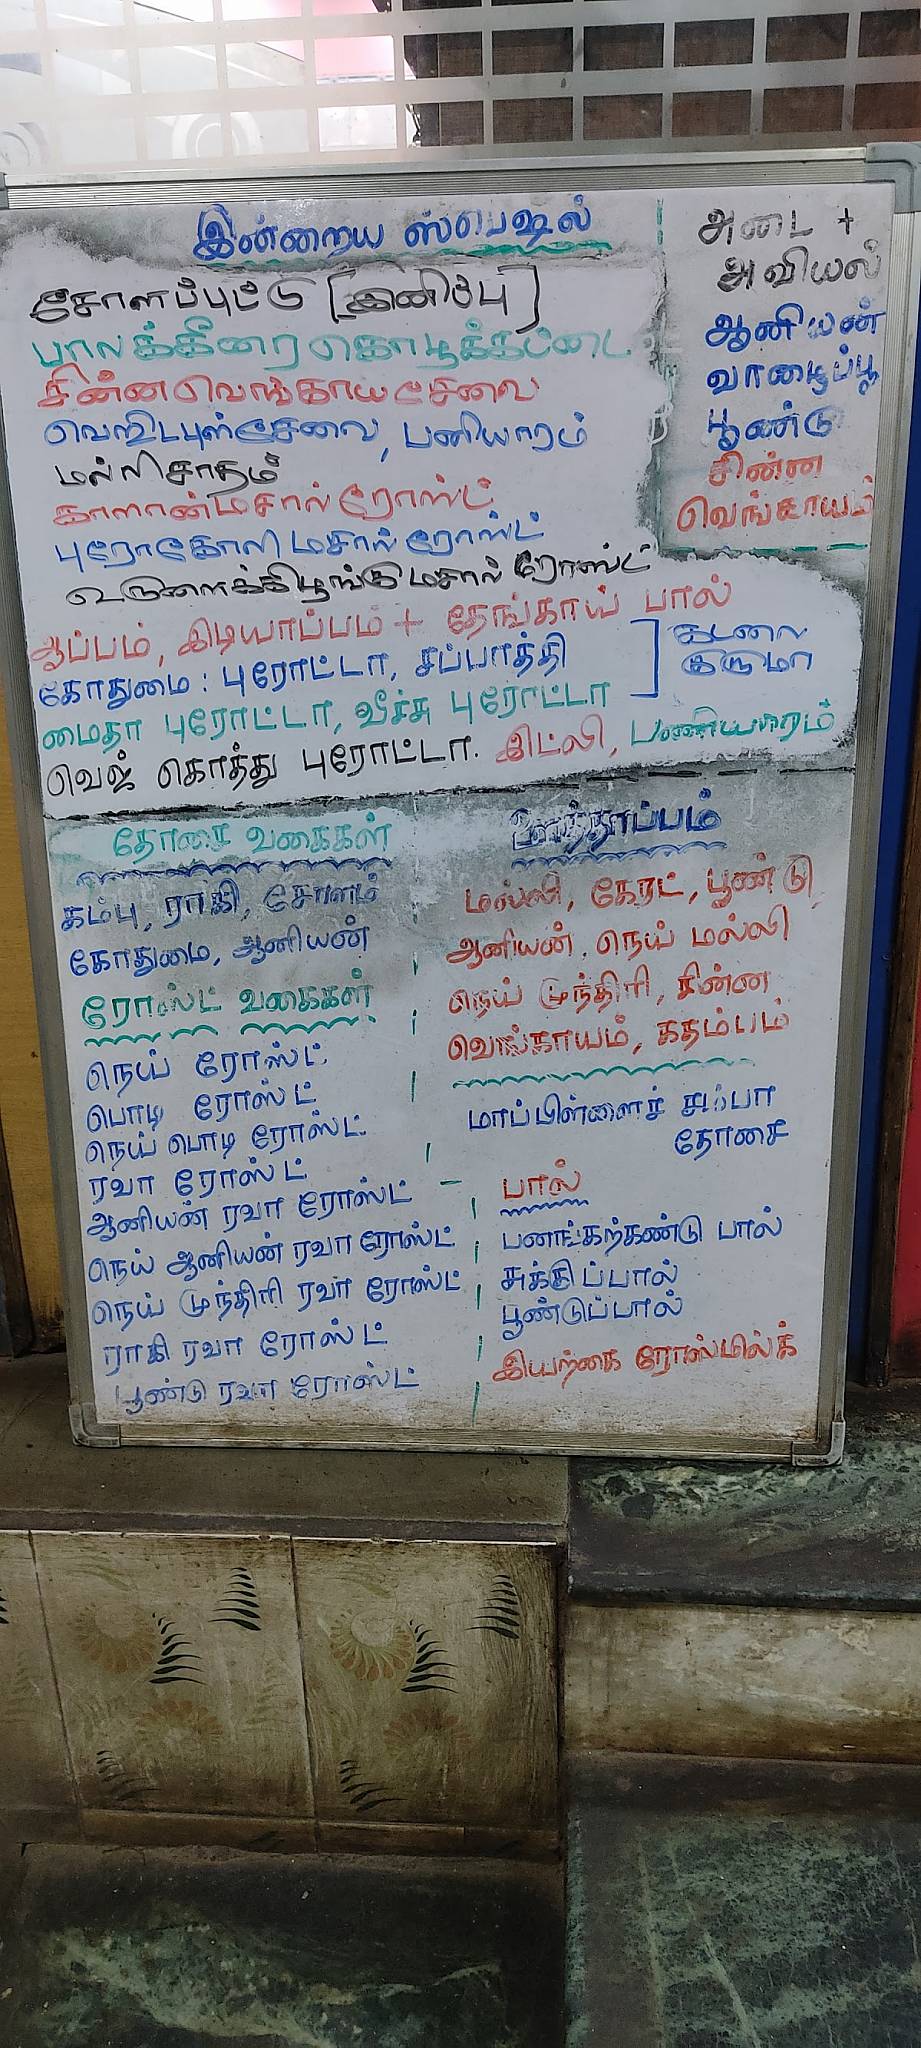 இன்றைய ஸ்பெஷல்
சோளப்புட்டு [இனிப்பு]
பாலக்கீரை கொழுக்கட்டை
சின்னவெங்காய சேவை
வெஜிடபுள்சேவை, பனியாரம்
மல்லிசாதம்
காளான்மசால் ரோஸ்ட்
புரோகோலி மசால் ரோஸ்ட்
உருளைக்கிழங்கு மசால் ரோஸ்ட்
ஆப்பம், இடியாப்பம் + தேங்காய் பால்
கோதுமை : புரோட்டா, சப்பாத்தி
மைதா புரோட்டா, வீச்சு புரோட்டா
கடலை
குருமா
வெஜ் கொத்து புரோட்டா. இட்லி, பணியாரம்
அடை +
அவியல்
ஆனியன்
வாழைப்பூ
பூண்டு
சின்ன
வெங்காயம்
தோசை வகைகள்
கம்பு, ராகி, சோளம்
கோதுமை, ஆனியன்
ரோஸ்ட் வகைகள்
நெய் ரோஸ்ட்
பொடி ரோஸ்ட்
நெய் பொடி ரோஸ்ட்
ரவா ரோஸ்ட்
ஆனியன் ரவா ரோஸ்ட்
நெய் ஆனியன் ரவா ரோஸ்ட்
நெய் முந்திரி ரவா ரோஸ்ட்
ராகி ரவா ரோஸ்ட்
பூண்டு ரவா ரோஸ்ட்
ஊத்தாப்பம்
மல்லி, கேரட், பூண்டு,
ஆனியன், நெய் மல்லி
நெய் முந்திரி, சின்ன
வெங்காயம், கதம்பம்
மாப்பிள்ளைச் சம்பா
தோசை
பால்
பனங்கற்கண்டு பால்
சுக்கிப்பால்
பூண்டுப்பால்
இயற்கை ரோஸ்மில்க்